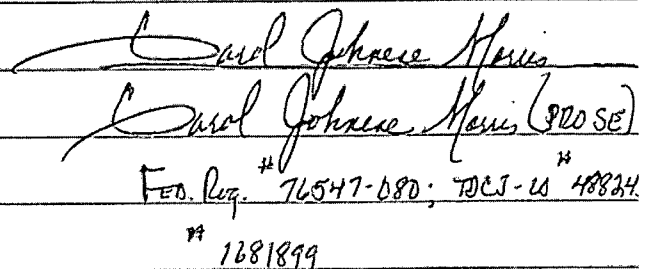 Carol Johnene Morris
Carol Johnene Morris (PRO SE)
FED. Reg. # 76547-080; TDCJ-ID # 48824
# 1681899